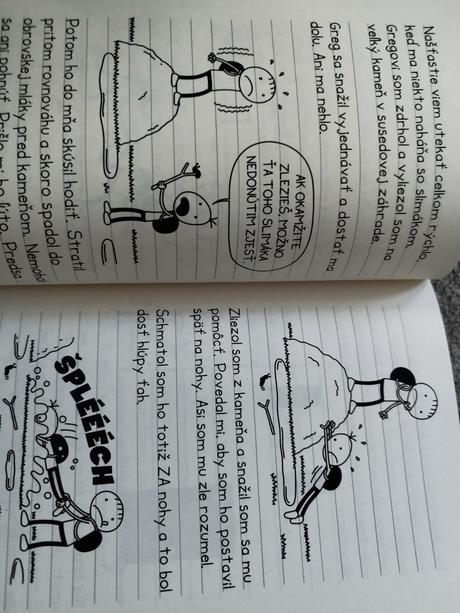 Našťastie viem utekať celkom rýchlo,
keď ma niekto naháňa so slimákom.
Gregovi som zdrhol a vyliezol som na
veľký kameň v susedovej záhrade.
Greg sa snažil vyjednávať a dostať ma
dolu. Ani ma nehlo.
AK OKAMŽITE
ZLEZIEŠ, MOŽNO
ŤA TOHO SLIMÁKA
NEDONÚTIM ZJESŤ.
Potom ho do mňa skúsil hodiť. Stratil
pritom rovnováhu a skoro spadol do
obrovskej mláky pred kameňom. Nemohol
sa ani pohnúť. Prišlo mi ho ľúto. Predsa
Zliezol som z kameňa a snažil som sa mu
pomôcť. Povedal mi, aby som ho postavil
späť na nohy. Asi som mu zle rozumel.
Schmatol som ho totiž ZA nohy a to bol
dosť hlúpy ťah.
ŠPLÉÉÉCH